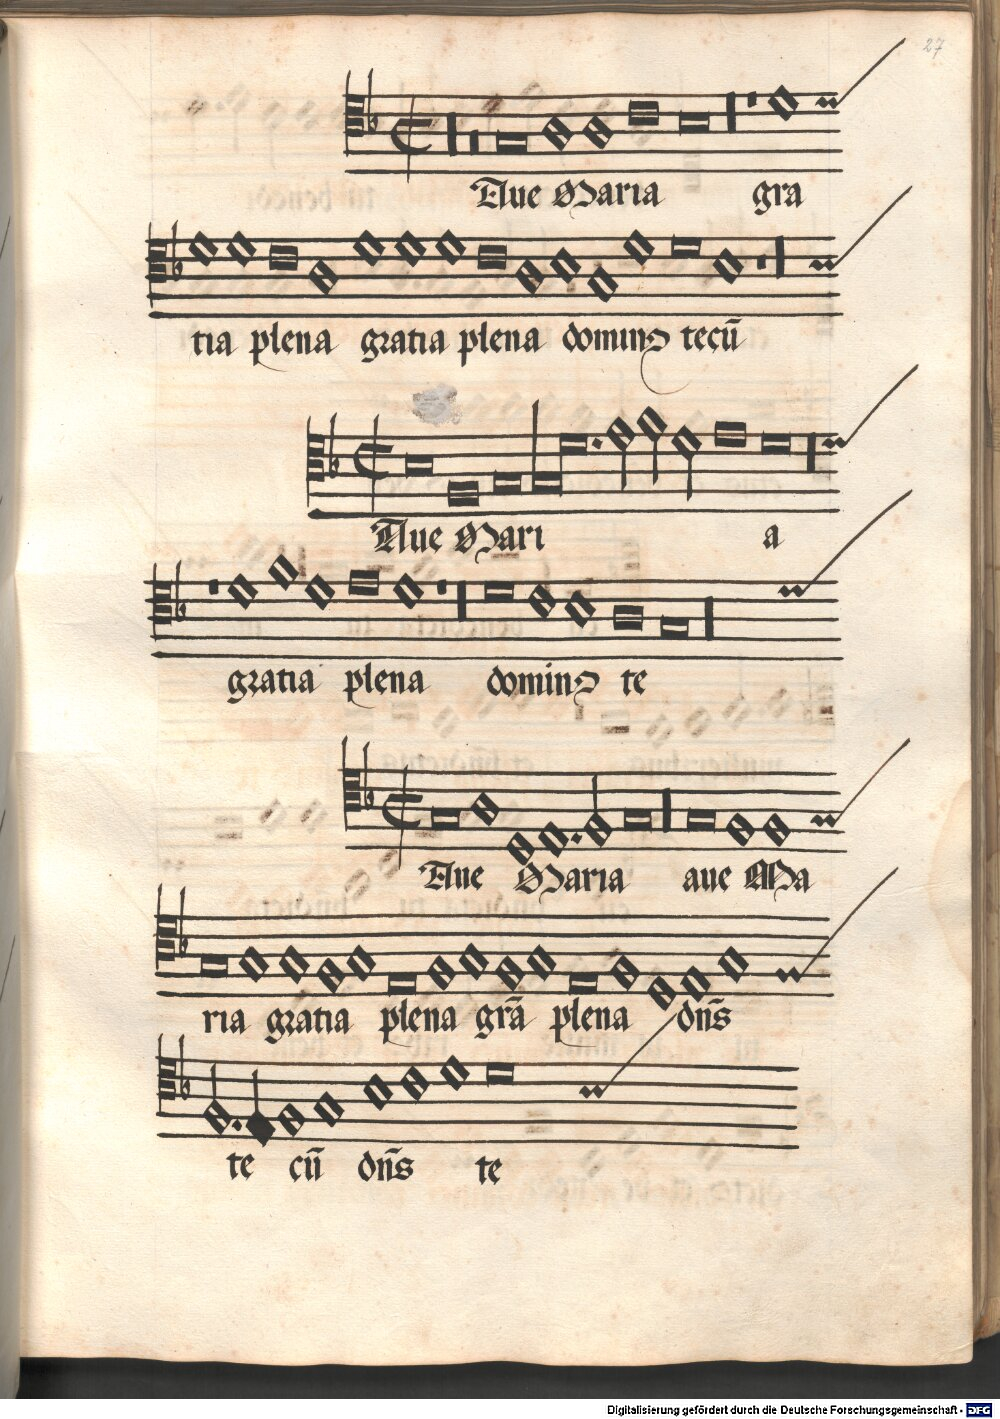 27
Aue Maria gra
tia plena gratia plena dominꝰ tecū
Aue Mari a
gratia plena dominꝰ te
Aue Maria aue Ma
ria gratia plena grā plena dn̄s
te cū dn̄s te
Digitalisierung gefördert durch die Deutsche Forschungsgemeinschaft - DFG